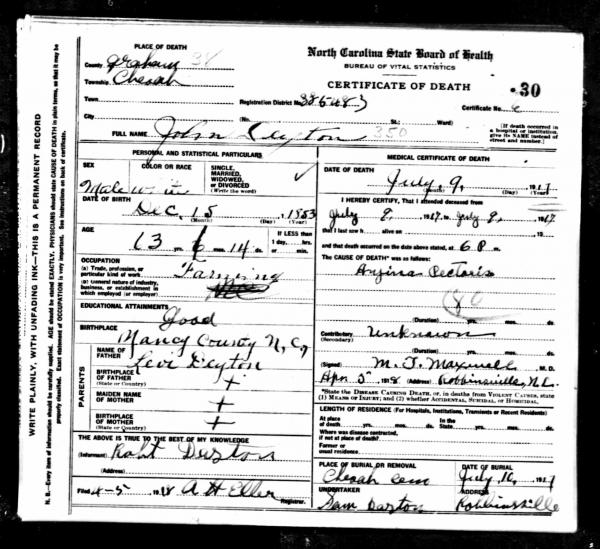 WRITE PLAINLY, WITH UNFADING INK—THIS IS A PERMANENT RECORD
N. B.—Every item of information should be carefully supplied. AGE should be stated EXACTLY. PHYSICIANS should state CAUSE OF DEATH in plain terms, so that it may be
properly classified. Exact statement of OCCUPATION is very important. See instructions on back of certificate.
PLACE OF DEATH
County Graham 38
Township Cheoah
Town
City
North Carolina State Board of Health
BUREAU OF VITAL STATISTICS
CERTIFICATE OF DEATH
30
Registration District No.
Certificate No. 6
(No. St.; Ward)
(If death occurred in a hospital or institution, give its NAME instead of street and number.)
FULL NAME John Deyton 350
PERSONAL AND STATISTICAL PARTICULARS
SEX Male
COLOR OR RACE
SINGLE, MARRIED, WIDOWED, OR DIVORCED (Write the word)
DATE OF BIRTH Dec 15, 1853
(Month) (Day) (Year)
AGE 63 yrs. 6 mos. 14 ds.
IF LESS than 1 day, hrs. or min.
OCCUPATION
(a) Trade, profession, or particular kind of work Farming
(b) General nature of industry, business, or establishment in which employed (or employer)
EDUCATIONAL ATTAINMENTS Good
BIRTHPLACE County N, C,
PARENTS
NAME OF FATHER Levi Deyton
BIRTHPLACE OF FATHER (State or Country) +
MAIDEN NAME OF MOTHER +
BIRTHPLACE OF MOTHER (State or Country) +
THE ABOVE IS TRUE TO THE BEST OF MY KNOWLEDGE
(Informant) Robt
(Address)
Filed 4-5 1918 A H Eller Registrar.
MEDICAL CERTIFICATE OF DEATH
DATE OF DEATH July 9, 1917
(Month) (Day) (Year)
I HEREBY CERTIFY, That I attended deceased from
July 8, 1917 to July 9, 1917
that I last saw h alive on , 19
and that death occurred on the date above stated, at 6 P m.
The CAUSE OF DEATH* was as follows:
Angina Pectoris
(Duration) yrs. mos. ds.
Contributory (Secondary) Unknown
(Duration) yrs. mos. ds.
(Signed) M. T. Maxwell, M. D.
Apr 5 1918 (Address) Robbinsville, N.C.
*State the DISEASE CAUSING DEATH, or, in deaths from VIOLENT CAUSES, state (1) MEANS OF INJURY; and (2) whether ACCIDENTAL, SUICIDAL, or HOMICIDAL.
LENGTH OF RESIDENCE (For Hospitals, Institutions, Transients or Recent Residents)
At place of death yrs. mos. ds. In the State yrs. mos. ds.
Where was disease contracted, if not at place of death?
Former or usual residence
PLACE OF BURIAL OR REMOVAL Cheoah cem
DATE OF BURIAL July 10, 1917
UNDERTAKER Sam
ADDRESS Robbinsville